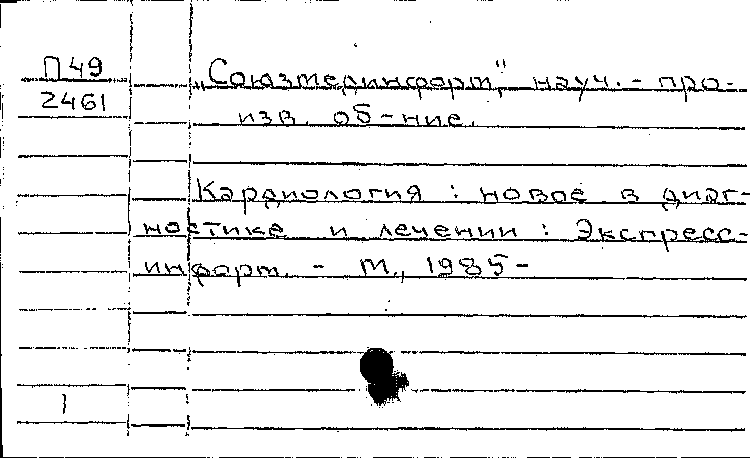 П49
2461
„Союзмединформ", науч.-про-
изв. об-ние.
Кардиология : новое в диаг-
ностике и лечении : Экспресс-
информ. - М., 1985-
1